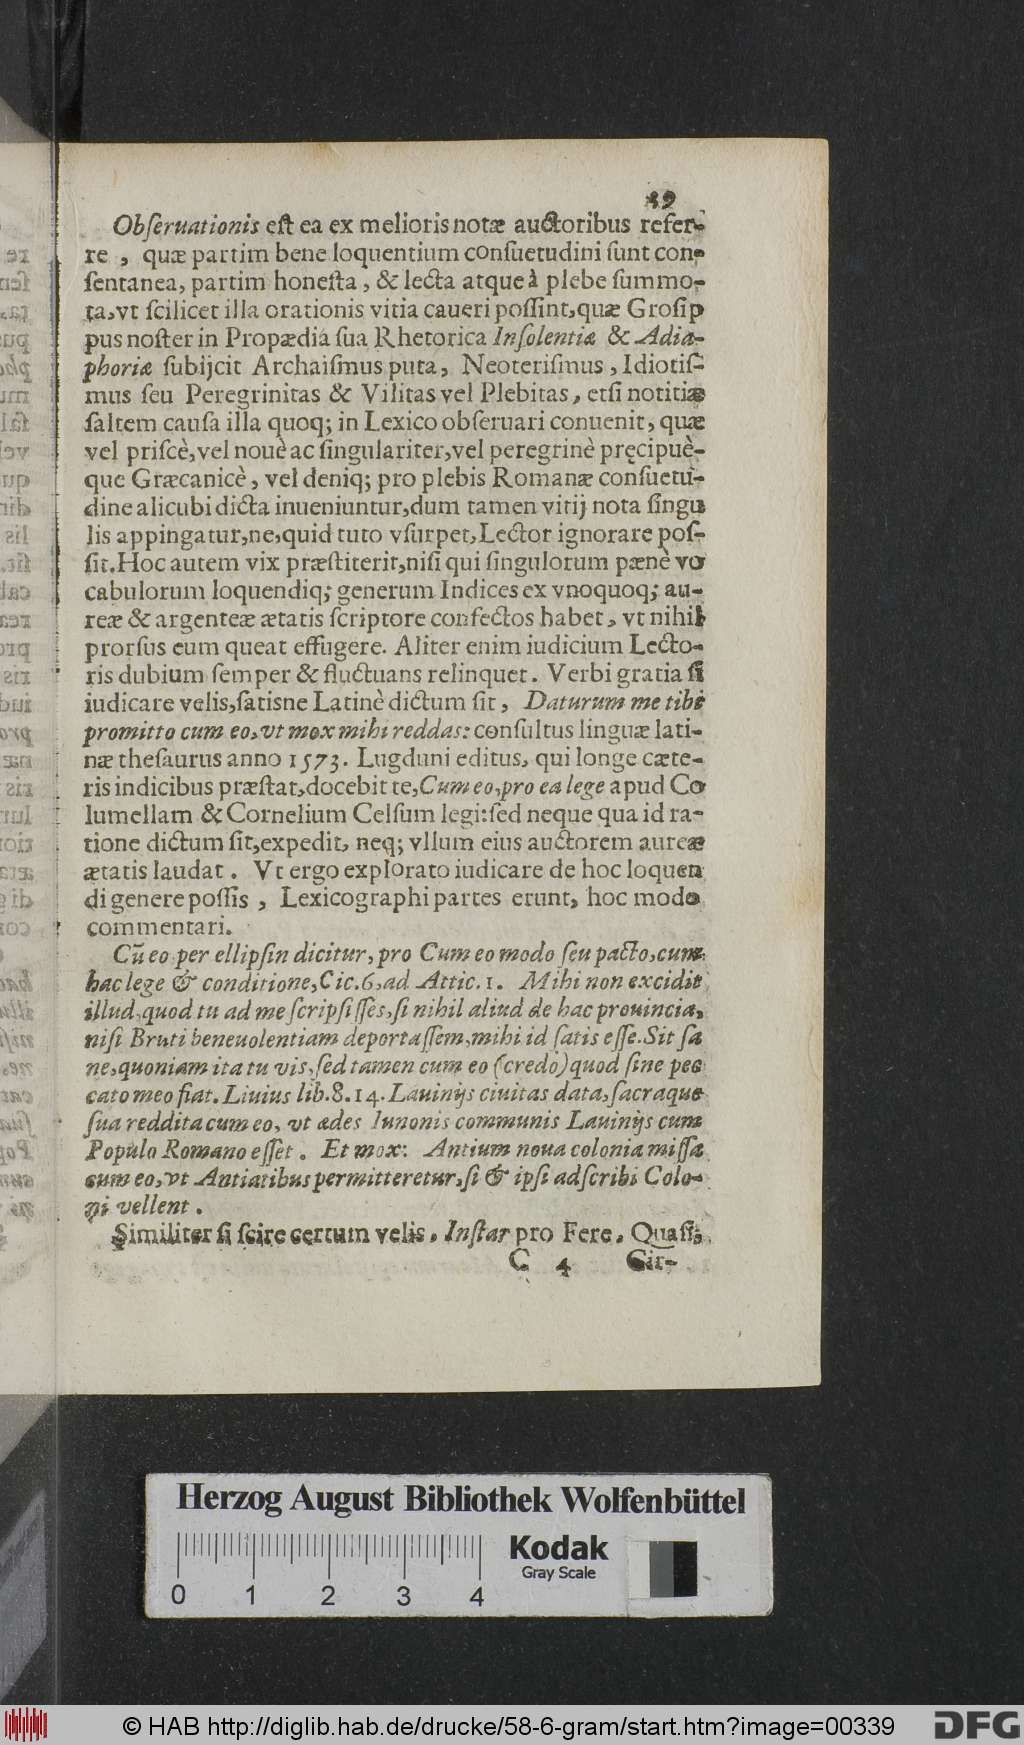 39
Obſeruationis eſt ea ex melioris notæ auctoribus refer-
re , quæ partim bene loquentium conſuetudini ſunt con-
ſentanea, partim honeſta, & lecta atque à plebe ſummo-
ta,vt ſcilicet illa orationis vitia caueri poſſint,quæ Groſip
pus noſter in Propædia ſua Rhetorica Inſolentiæ & Adia-
phoriæ ſubijcit Archaiſmus puta, Neoteriſmus, Idiotiſ-
mus ſeu Peregrinitas & Vilitas vel Plebitas, etſi notitiæ
ſaltem cauſa illa quoq; in Lexico obſeruari conuenit, quæ
vel priſcè,vel nouè ac ſingulariter,vel peregrinè pręcipuè-
que Græcanicè, vel deniq; pro plebis Romanæ conſuetu-
dine alicubi dicta inueniuntur,dum tamen vitij nota ſingu
lis appingatur,ne,quid tuto vſurpet,Lector ignorare poſ-
ſit.Hoc autem vix præſtiterit,niſi qui ſingulorum pænè vo
cabulorum loquendiq; generum Indices ex vnoquoq; au-
reæ & argenteæ ætatis ſcriptore confectos habet, vt nihil
prorſus eum queat effugere. Aliter enim iudicium Lecto-
ris dubium ſemper & fluctuans relinquet. Verbi gratia ſi
iudicare velis,ſatisne Latinè dictum ſit, Daturum me tibi
promitto cum eo,vt mox mihi reddas: conſultus linguæ lati-
næ theſaurus anno 1573. Lugduni editus, qui longe cæte-
ris indicibus præſtat,docebit te,Cum eo,pro ea lege apud Co
lumellam & Cornelium Celſum legi:ſed neque qua id ra-
tione dictum ſit,expedit, neq; vllum eius auctorem aureæ
ætatis laudat. Vt ergo explorato iudicare de hoc loquen
di genere poſſis, Lexicographi partes erunt, hoc modo
commentari.
Cũ eo per ellipſin dicitur, pro Cum eo modo ſeu pacto,cum
hac lege & conditione,Cic.6,ad Attic.1. Mihi non excidit
illud,quod tu ad me ſcripſiſſes,ſi nihil aliud de hac prouincia,
niſi Bruti beneuolentiam deportaſſem,mihi id ſatis eſſe.Sit ſa
ne,quoniam ita tu vis,ſed tamen cum eo (credo) quod ſine pec
cato meo fiat. Liuius lib.8.14. Lauinijs ciuitas data,ſacraque
ſua reddita cum eo, vt ædes Iunonis communis Lauinijs cum
Populo Romano eſſet. Et mox: Antium noua colonia miſſa
cum eo,vt Antiatibus permitteretur,ſi & ipſi adſcribi Colo-
ni vellent.
Similiter ſi ſcire certum velis, Inſtar pro Fere, Quaſi,
C 4 Cir-
Herzog August Bibliothek Wolfenbüttel
Kodak
Gray Scale
0 1 2 3 4
© HAB http://diglib.hab.de/drucke/58-6-gram/start.htm?image=00339
DFG